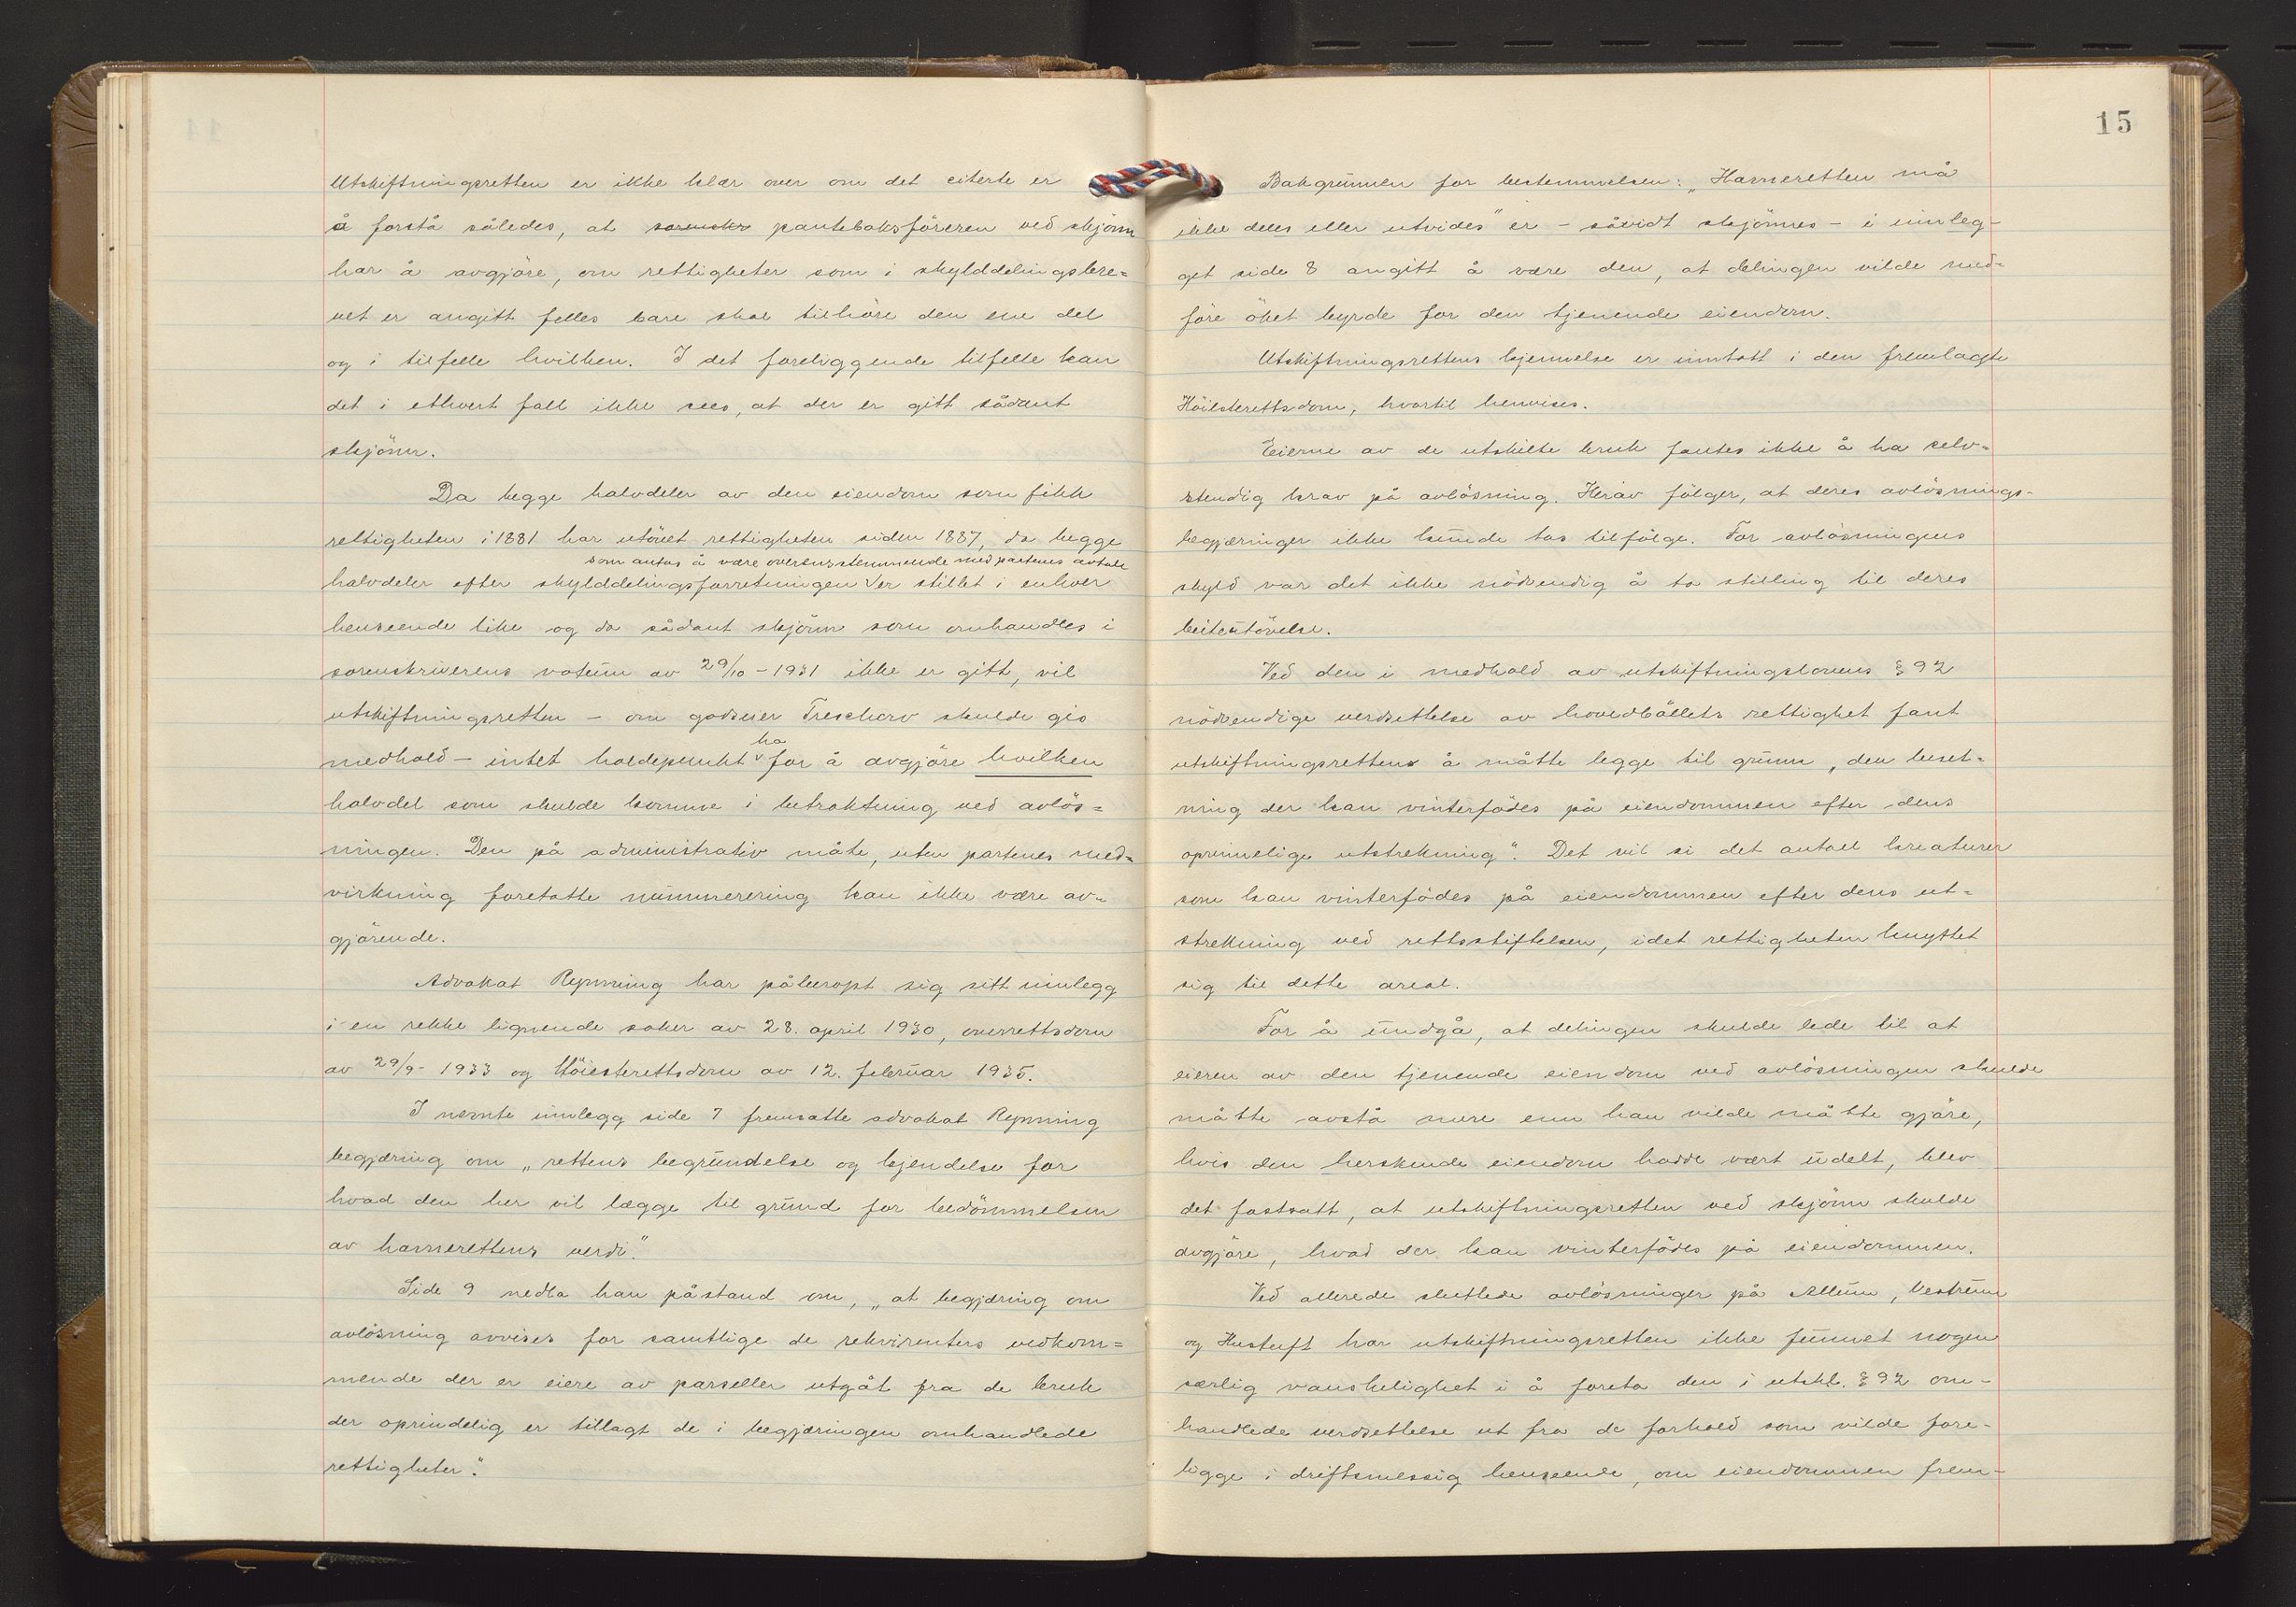 Utskiftningsretten er ikke klar over om det citerte er
å forstå således, at sorenskr panteboksföreren ved skjönn
har å avgjöre, om rettigheter som i skylddelingsbre=
vet er angitt felles bare skal tilhöre den ene del
og i tilfelle hvilken. I det foreliggende tilfelle kan
det i ethvert fall ikke sees, at der er gitt sådant
skjönn.
Da begge halvdeler av den eiendom som fikk
rettigheten i 1881 har utövet rettigheten siden 1887, da begge
som antas å være overensstemmende med partenes avtale
halvdeler efter skylddelingsforretningen er stillet i enhver
henseende like og da sådant skjönn som omhandles i
sorenskriverens votum av 29/10 - 1931 ikke er gitt, vil
utskiftningsretten - om godseier Treschow skulde gis
ha
medhold - intet holdepunkt for å avgjöre hvilken
halvdel som skulde komme i betraktning ved avlös=
ningen. Den på administrativ måte, uten partenes med=
virkning foretatte nummerering kan ikke være av=
gjörende.
Advokat Rynning har påberopt sig sitt innlegg
i en rekke lignende saker av 28. april 1930, overrettsdom
av 29/9 - 1933 og Höiesterettsdom av 12. februar 1935.
I nevnte innlegg side 7 fremsatte advokat Rynning
begjæring om „rettens begrundelse og kjendelse for
hvad den her vil lægge til grund for bedömmelsen
av havnerettens verdi."
Side 9 nedla han påstand om, „at begjæring om
avlösning avvises for samtlige de rekvirenters vedkom=
mende der er eiere av parseller utgåt fra de bruk
der oprindelig er tillagt de i begjæringen omhandlede
rettigheter."
15
Bakgrunnen for bestemmelsen: „Havneretten må
ikke deles eller utvides" er - såvidt skjönnes - i innleg-
get side 8 angitt å være den, at delingen vilde med=
före öket byrde for den tjenende eiendom.
Utskiftningsrettens kjennelse er inntatt i den fremlagte
Höiesterettsdom, hvortil henvises.
Eierne av de utskilte bruk fantes ikke å ha selv=
stendig krav på avlösning. Herav fölger, at deres avlösnings-
begjæringer ikke kunde tas tilfölge. For avlösningens
skyld var det ikke nödvendig å ta stilling til deres
beiteutövelse.
Ved den i medhold av utskiftningslovens § 92
nödvendige verdsettelse av hovedbölets rettighet fant
utskiftningsretten å måtte legge til grunn „den beset=
ning der kan vinterfödes på eiendommen efter dens
oprinnelige utstrekning". Det vil si det antall kreaturer
som kan vinterfödes på eiendommen efter dens ut=
strekning ved rettsstiftelsen, idet rettigheten knyttet
sig til dette areal.
For å undgå, at delingen skulde lede til at
eieren av den tjenende eiendom ved avlösningen skulde
måtte avstå mere enn han vilde måtte gjöre,
hvis den herskende eiendom hadde vært udelt, blev
det fastsatt, at utskiftningsretten ved skjönn skulde
avgjöre, hvad der kan vinterfödes på eiendommen.
Ved allerede sluttede avlösninger på Allum, Vestrum
og Hustuft har utskiftningsretten ikke funnet nogen
særlig vanskelighet i å foreta den i utskl. § 92 om-
handlede verdsettelse ut fra de forhold som vilde fore-
ligge i driftsmessig henseende, om eiendommen frem-